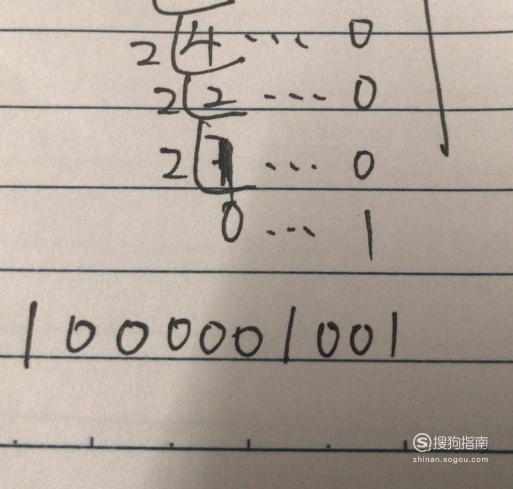 2 4 ... 0
2 2 ... 0
2 1 ... 0
0 ... 1
1000001001
搜狗指南
zhinan.sogou.com